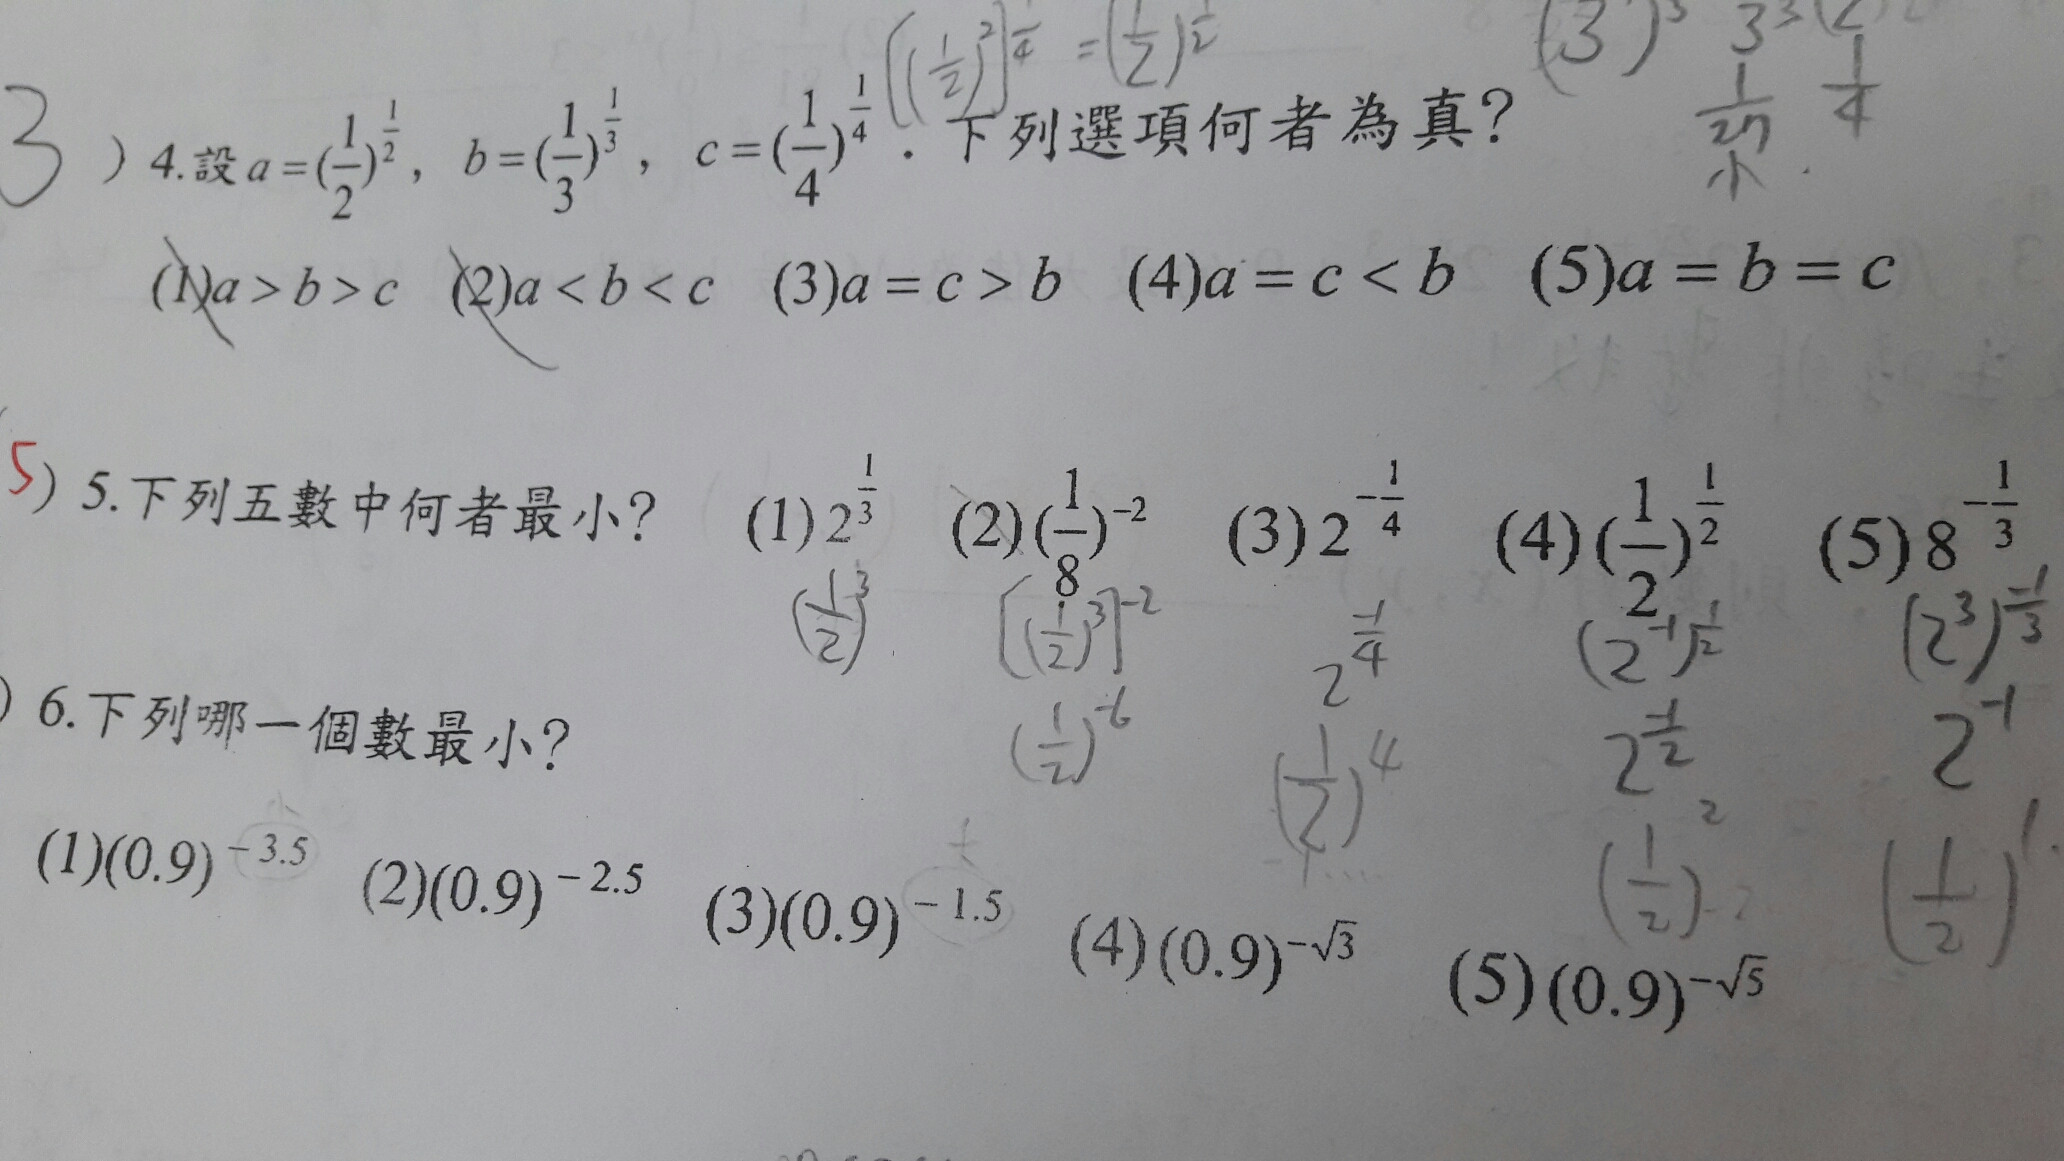 [(1/2)²]^(1/4) = (1/2)^(1/2)
1/27 1/4
小
3 ) 4.設 a = (1/2)^(1/2), b = (1/3)^(1/3), c = (1/4)^(1/4). 下列選項何者為真?
(1)a > b > c (2)a < b < c (3)a = c > b (4)a = c < b (5)a = b = c
5) 5.下列五數中何者最小? (1) 2^(1/3) (2) (1/8)^(-2) (3) 2^(-1/4) (4) (1/2)^(1/2) (5) 8^(-1/3)
(1/2)³ [(1/2)³]^(-2) 2^(-1/4) (2^(-1))^(1/2) (2³)^(-1/3)
(1/2)^(-6) (1/2)^4 2^(-1/2) 2^(-1)
(1/2)² (1/2)^1
) 6.下列哪一個數最小?
(1)(0.9)^(-3.5) (2)(0.9)^(-2.5) (3)(0.9)^(-1.5) (4)(0.9)^(-√3) (5)(0.9)^(-√5)